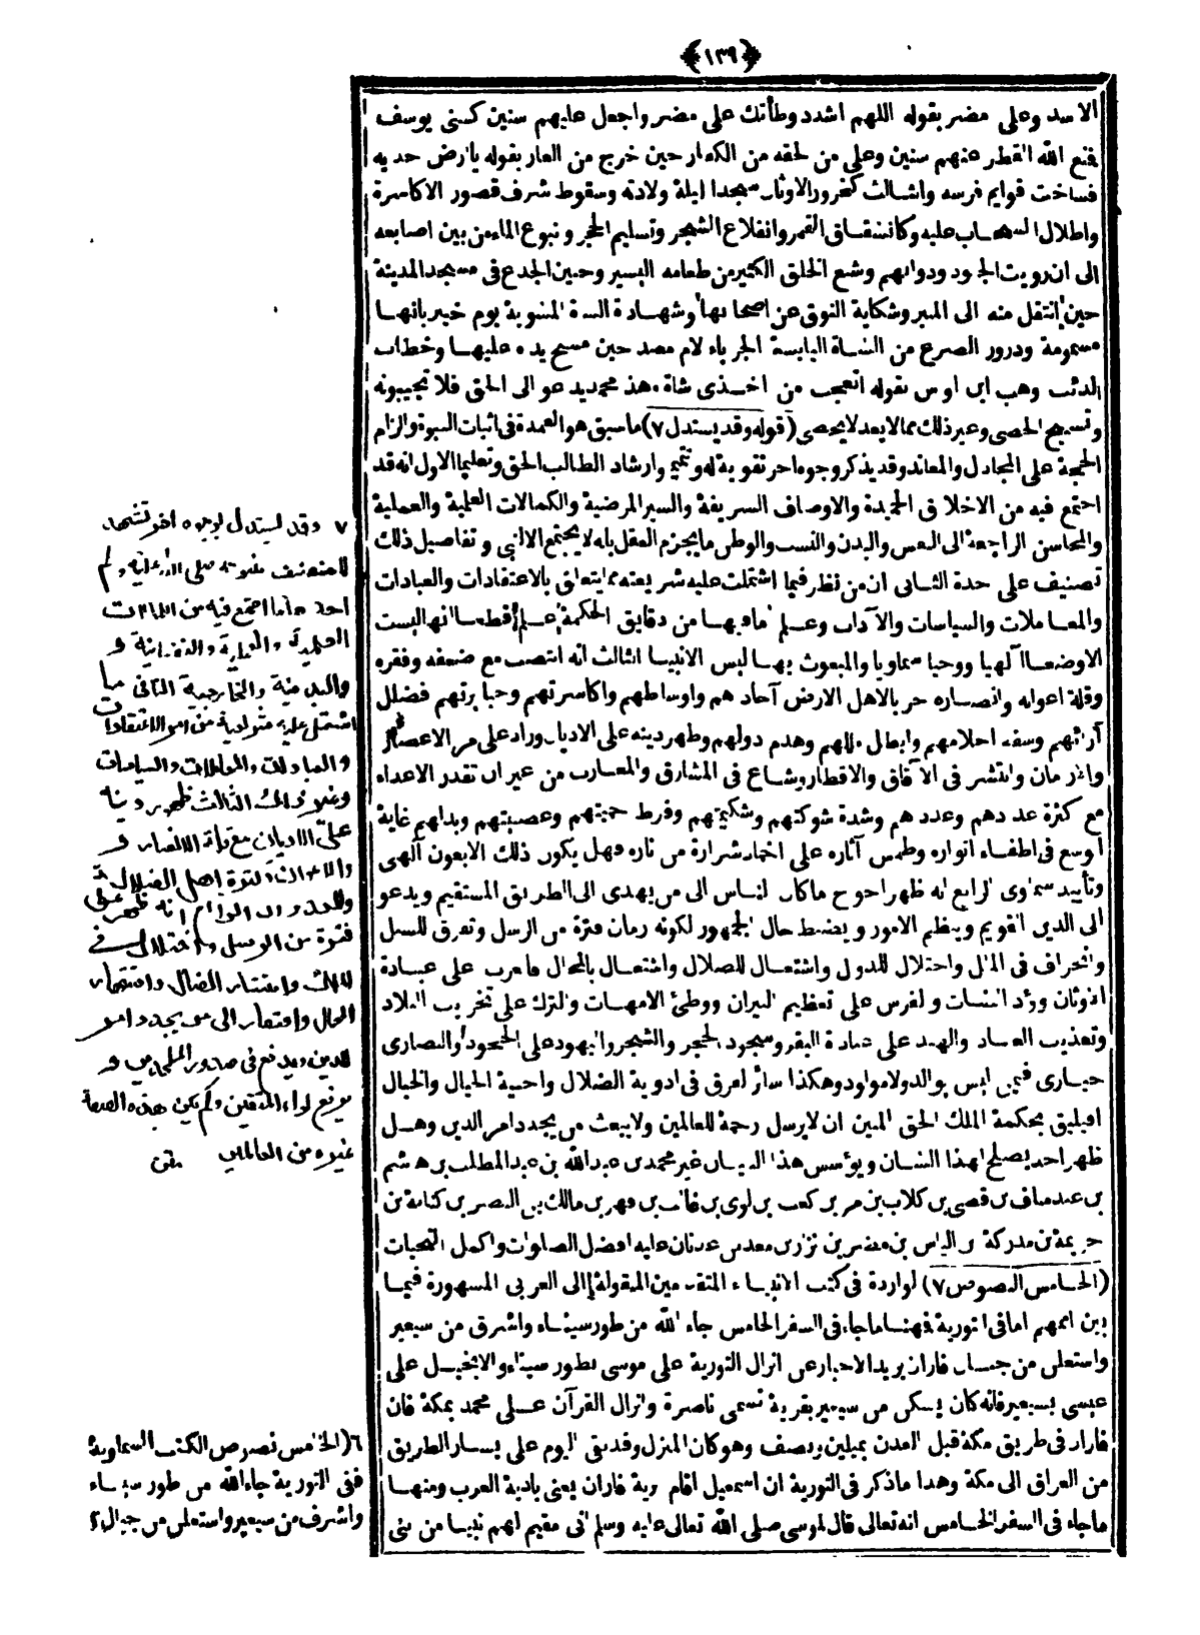 ﴿١٣٩﴾
الاسد وعلى مضر بقوله اللهم اشدد وطأتك على مضر واجعل عليهم سنين كسنى يوسف
فمنع الله القطر عنهم سنين وعلى من لحقه من الكفار حين خرج من الغار بقوله ياارض خديه
فساخت قوايم فرسه والثالث كخرور الاوثان سجدا ليلة ولادته وسقوط شرف قصور الاكاسرة
واظلال السحاب عليه وكانشقاق القمر وانقلاع الشجر وتسليم الحجر ونبوع الماء من بين اصابعه
الى ان رويت الجنود ودوابهم وشبع الخلق الكثير من طعامه اليسير وحنين الجذع فى مسجد المدينة
حين انتقل منه الى المنبر وشكاية النوق عن اصحابها وشهادة الشاة المشوية يوم خيبر بانها
مسمومة ودرور الضرع من الشاة اليابسة الجرباء لام معبد حين مسح يده عليها وخطاب
الذئب وهب ابن اوس بقوله اتعجب من اخذى شاة هذا محمد يدعو الى الحق فلا تجيبونه
وتسبيح الحصى وغير ذلك مما لا يعد ولا يحصى (قوله وقد يستدل ٧) ما سبق هو العمدة فى اثبات النبوة والزام
الحجة على المجادل والمعاند وقد يذكر وجوه اخر تقوية له وتتميم وارشاد الطالب الحق وتعليما الاول انه قد
اجتمع فيه من الاخلاق الحميدة والاوصاف الشريفة والسير المرضية والكمالات العلمية والعملية
والمحاسن الراجعة الى النفس والبدن والنسب والوطن ما يجزم العقل بانه لا يجتمع الا لنبى وتفاصيل ذلك
تصنيف على حدة الثانى ان من نظر فيما اشتملت عليه شريعته مما يتعلق بالاعتقادات والعبادات
والمعاملات والسياسات والآداب وعلم ما فيها من دقايق الحكمة علم قطعا انها ليست
الا وضعا آلهيا ووحيا سماويا والمبعوث بها ليس الا نبيا الثالث انه انتصب مع ضعفه وفقره
وقلة اعوانه وانصاره حربا لاهل الارض آحادهم واوساطهم واكاسرتهم وجبابرتهم فضلل
آرائهم وسفه احلامهم وابطل مللهم وهدم دولهم وظهر دينه على الاديان وزاد على مر الاعصار
والازمان وانتشر فى الآفاق والاقطار وشاع فى المشارق والمغارب من غير ان تقدر الاعداء
مع كثرة عددهم وعددهم وشدة شوكتهم وشكيمتهم وفرط حميتهم وعصبيتهم وبذلهم غاية
الوسع فى اطفاء انواره وطمس آثاره على اخماد شرارة من ناره فهل يكون ذلك الا بعون آلهى
وتأييد سماوى الرابع انه ظهر احوج ما كان الناس الى من يهدى الى الطريق المستقيم ويدعو
الى الدين القويم وينظم الامور ويضبط حال الجمهور لكونه زمان فترة من الرسل وتفرق للسبل
وانحراف فى الملل واختلال للدول واشتعال للضلال واشتغال بالمحال فالعرب على عبادة
الاوثان ووأد البنات والفرس على تعظيم النيران ووطئ الامهات والترك على تخريب البلاد
وتعذيب العباد والهند على عبادة البقر وسجود الحجر والشجر واليهود على الجحود والنصارى
حيارى فيمن ليس بوالد ولا مولود وهكذا سائر الفرق فى اودية الضلال واخبية الخيال والخبال
افيليق بحكمة الملك الحق المبين ان لا يرسل رحمة للعالمين ولا يبعث من يجدد امر الدين وهل
ظهر احد يصلح لهذا الشان ويؤسس هذا البنيان غير محمد بن عبد الله بن عبد المطلب بن هاشم
بن عبد مناف بن قصى بن كلاب بن مرة بن كعب بن لوى بن غالب بن فهر بن مالك بن النضر بن كنانة بن
خزيمة بن مدركة بن الياس بن مضر بن نزار بن معد بن عدنان عليه افضل الصلوات واكمل التحيات
(الخامس النصوص ٧) الواردة فى كتب الانبياء المتقدمين المنقولة الى العربى المشهورة فيما
بين اممهم اما فى التورية فمنها ما جاء فى السفر الخامس جاء الله من طور سيناء واشرق من سيعير
واستعلى من جبال فاران يريد الاخبار عن انزال التورية على موسى بطور سيناء والانجيل على
عيسى بسيعير فانه كان يسكن من سيعير بقرية تسمى ناصرة وانزال القرآن على محمد بمكة فان
فاران فى طريق مكة قبل العدن بميلين ونصف وهو كان المنزل وقد بقى اليوم على يسار الطريق
من العراق الى مكة وهذا ما ذكر فى التورية ان اسمعيل اقام برية فاران يعنى بادية العرب ومنها
ما جاء فى السفر الخامس انه تعالى قال لموسى صلى الله تعالى عليه وسلم انى مقيم لهم نبيا من بنى
٧ وقد يستدل بوجوه اخر تشهد
للمنصف بنبوته صلى الله عليه وسلم
احدها ما اجتمع فيه من الكمالات
العلمية والعملية والنفسانية و
والبدنية والخارجية الثانى ما
اشتمل عليه من امر الاعتقادات
والعبادات والمعاملات والسياسات
وغير ذلك الثالث ظهور دينه
على الاديان مع قلة الانصار و
والاعوان وكثرة اهل الضلال
والعدوان الرابع انه ظهر على
فترة من الرسل واختلال فى
الملل وانتشار الضلال واشتهار
المحال وافتقار الى من يجدد امر
الدين ويدفع فى صدور الملحدين و
يرفع لواء المتقين ولم يكن بهذه الصفة
غيره من العالمين متن
٦ (الخامس نصوص الكتب السماوية
ففى التورية جاء الله من طور سيناء
واشرف من سيعير واستعلى من جبال ٢